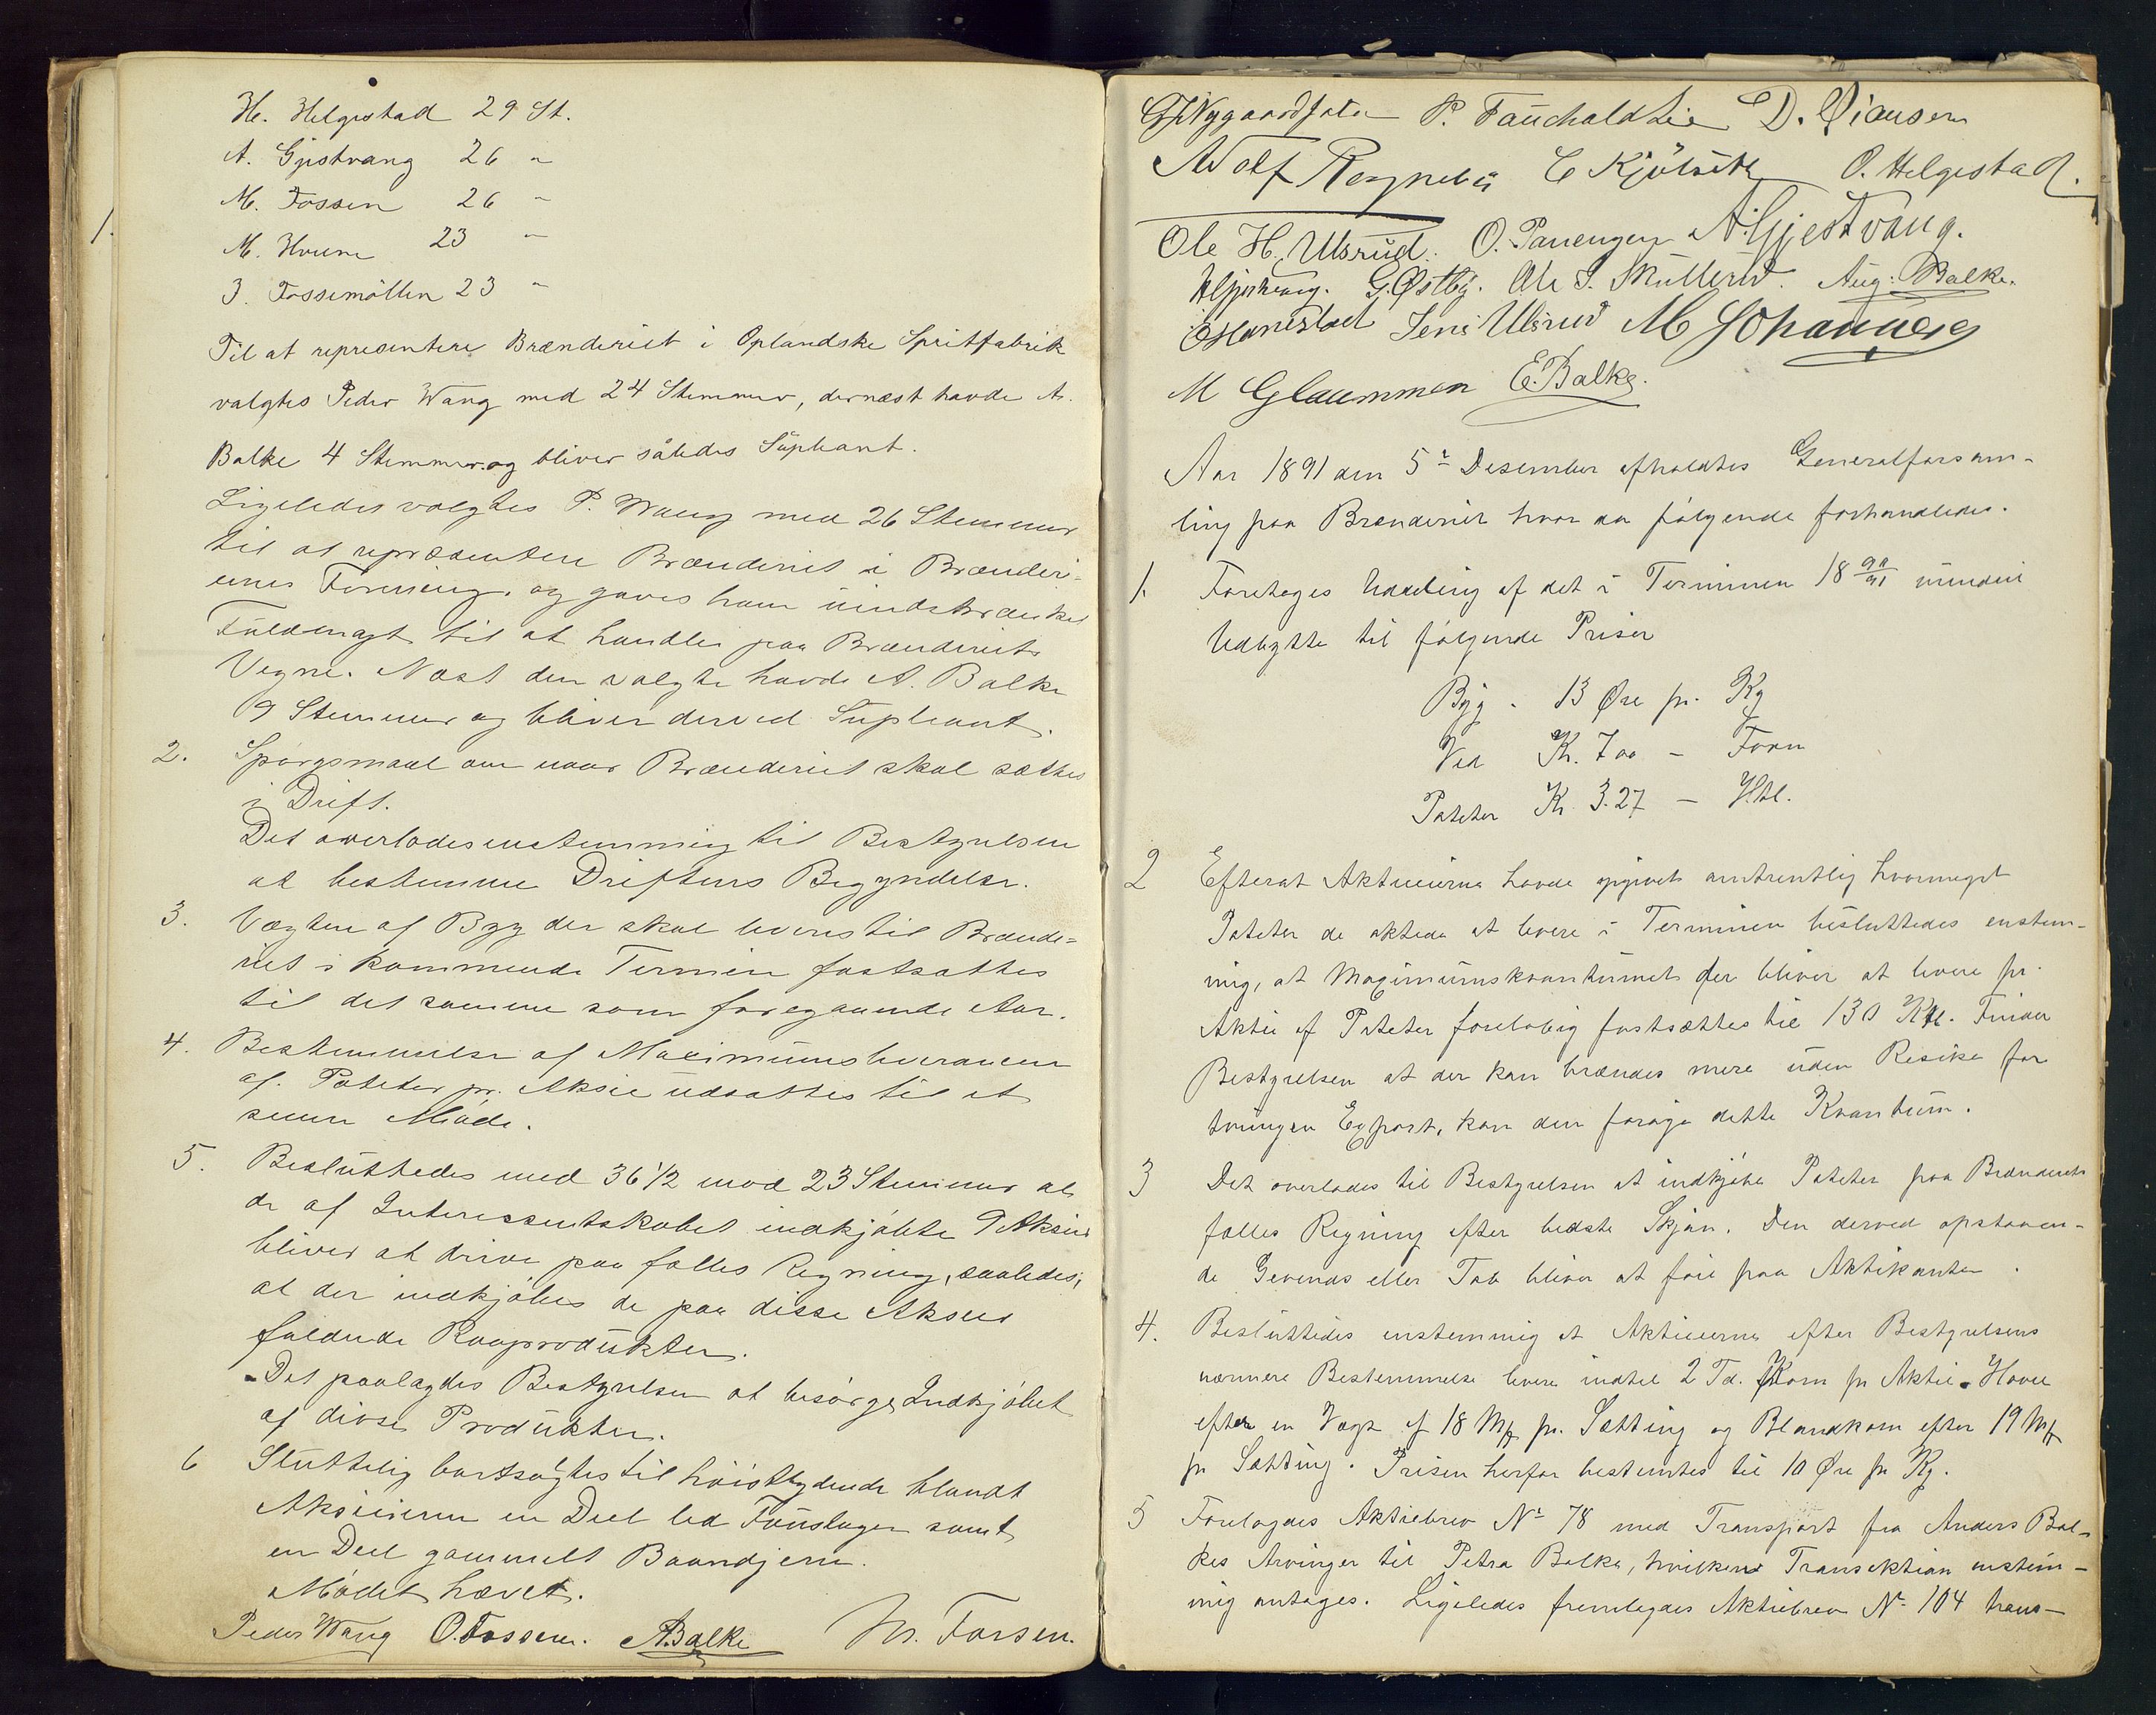 H. Helgestad 29 St.
A. Gjestvang 26 "
M. Fossen 26 "
1.
M. Hveem 23 "
J. Fossemöllen 23 "
Til at representere Brænderiet i Oplandske Spritfabrik
valgtes Peder Wang med 24 Stemmer, dernæst havde A.
Balke 4 Stemmer og bliver således Supleant.
Ligeledes valgtes P. Wang med 26 Stemmer
til at repræsentere Brænderiet i Brænderi-
ernes Forening, og gaves ham uindskrænket
Fuldmagt til at handle paa Brænderiets
Vegne. Næst den valgte havde A. Balke
9 Stemmer og bliver derved Supleant.
2. Spørgsmaal om naar Brænderiet skal sættes
i Drift.
Det overlodes enstemmig til Bestyrelsen
at bestemme Driftens Begyndelse.
3. Vægten af Byg der skal leveres til Brænde=
riet i kommende Termin fastsattes
til det samme som foregaaende Aar.
4. Bestemmelse af Maximumsleverancen
af Poteter pr. Aksie udsattes til et
senere Møde.
5. Besluttedes med 36 1/2 mod 23 Stemmer at
de af Interessentskabet indkjøbte 9 Aksier
bliver at drive paa fælles Regning, saaledes,
at der indkjøbes de paa disse Aksier
faldende Raaprodukter.
Det paalagdes Bestyrelsen at besørge Indkjøbet
af disse Produkter.
6 Sluttelig bortsolgtes til høistbydende blandt
Aksieierne en Deel led Foustager samt
en Deel gammelt Baandjern.
Mødet hævet.
Peder Wang O. Fossen. A. Balke M. Fossen.
P. Fauchald Lie D. Clausen
Adolf C Kjölseth O. Helgestad.
Ole H. Ulsrud. O. Panengen A. Gjestvang.
H Gjestvang. G. Østby. Ole S. Müllerud. Aug. Balke.
Jens Ulsrud M Johannesen
M Glaummen E. Balke.
Aar 1891 den 5te Desember afholdtes Generalforsam-
ling paa Brænderiet hvor da følgende forhandledes.
1. Foretoges Uddeling af det i Terminen 18 90/91 vundne
Udbytte til følgende Priser
Byg . 13 Øre pr. Kg
Ved Kr. 7.00 - Favn
Poteter Kr. 3.27 - Hkl.
2 Efterat Aktieeierne havde opgivet omtrentlig hvormeget
Poteter de aktede at levere i Terminen besluttedes enstem-
mig, at Maximumskvantumet der bliver at levere pr.
Aktie af Poteter foreløbig fastsættes til 130 Hkl. Finder
Bestyrelsen at der kan brændes mere uden Resiko for
tvungen Export, kan den forøge dette Kvantum.
3 Det overlodes til Bestyrelsen at indkjøbe Poteter paa Brænderiets
fælles Regning efter bedste Skjøn. Den derved opstaaen-
de Gevinds eller Tab bliver at føre paa Aktikonten.
4. Besluttedes enstemmig at Aktieeierne efter Bestyrelsens
nærmere Bestemmelse levere indtil 2 Td. Korn pr Aktie. Havre
efter en Vægt af 18 Mk pr. Sætting og Blandkorn efter 19 Mk
pr Sætting. Prisen herfor bestemtes til 10 Øre pr Kg.
5 Forelagdes Aktiebrev No 78 med Transport fra Anders Bal-
kes Arvinger til Petra Balke, hvilken Transaktion enstem-
mig antoges. Ligeledes fremlagdes Aktiebrev No 104 trans-